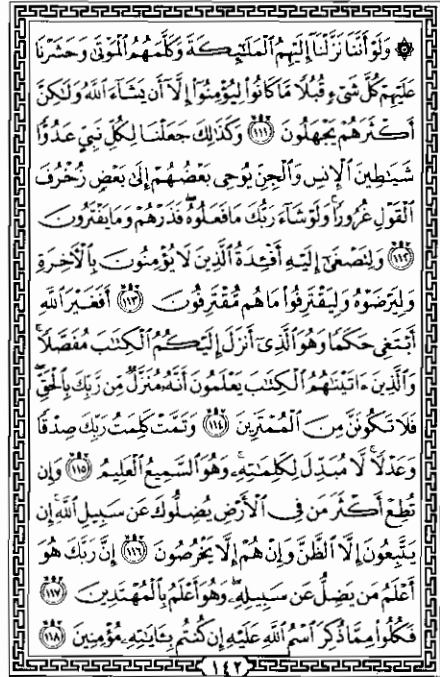 ۞ وَلَوْ أَنَّنَا نَزَّلْنَا إِلَيْهِمُ الْمَلَٰٓئِكَةَ وَكَلَّمَهُمُ الْمَوْتَىٰ وَحَشَرْنَا
عَلَيْهِمْ كُلَّ شَىْءٍ قُبُلًا مَّا كَانُوا۟ لِيُؤْمِنُوٓا۟ إِلَّآ أَن يَشَآءَ اللَّهُ وَلَٰكِنَّ
أَكْثَرَهُمْ يَجْهَلُونَ ﴿١١١﴾ وَكَذَٰلِكَ جَعَلْنَا لِكُلِّ نَبِىٍّ عَدُوًّا
شَيَٰطِينَ الْإِنسِ وَالْجِنِّ يُوحِى بَعْضُهُمْ إِلَىٰ بَعْضٍ زُخْرُفَ
الْقَوْلِ غُرُورًا ۚ وَلَوْ شَآءَ رَبُّكَ مَا فَعَلُوهُ ۖ فَذَرْهُمْ وَمَا يَفْتَرُونَ
﴿١١٢﴾ وَلِتَصْغَىٰٓ إِلَيْهِ أَفْـِٔدَةُ الَّذِينَ لَا يُؤْمِنُونَ بِالْـَٔاخِرَةِ
وَلِيَرْضَوْهُ وَلِيَقْتَرِفُوا۟ مَا هُم مُّقْتَرِفُونَ ﴿١١٣﴾ أَفَغَيْرَ اللَّهِ
أَبْتَغِى حَكَمًا وَهُوَ الَّذِىٓ أَنزَلَ إِلَيْكُمُ الْكِتَٰبَ مُفَصَّلًا ۚ
وَالَّذِينَ ءَاتَيْنَٰهُمُ الْكِتَٰبَ يَعْلَمُونَ أَنَّهُۥ مُنَزَّلٌ مِّن رَّبِّكَ بِالْحَقِّ ۖ
فَلَا تَكُونَنَّ مِنَ الْمُمْتَرِينَ ﴿١١٤﴾ وَتَمَّتْ كَلِمَتُ رَبِّكَ صِدْقًا
وَعَدْلًا ۚ لَّا مُبَدِّلَ لِكَلِمَٰتِهِۦ ۚ وَهُوَ السَّمِيعُ الْعَلِيمُ ﴿١١٥﴾ وَإِن
تُطِعْ أَكْثَرَ مَن فِى الْأَرْضِ يُضِلُّوكَ عَن سَبِيلِ اللَّهِ ۚ إِن
يَتَّبِعُونَ إِلَّا الظَّنَّ وَإِنْ هُمْ إِلَّا يَخْرُصُونَ ﴿١١٦﴾ إِنَّ رَبَّكَ هُوَ
أَعْلَمُ مَن يَضِلُّ عَن سَبِيلِهِۦ ۖ وَهُوَ أَعْلَمُ بِالْمُهْتَدِينَ ﴿١١٧﴾
فَكُلُوا۟ مِمَّا ذُكِرَ اسْمُ اللَّهِ عَلَيْهِ إِن كُنتُم بِـَٔايَٰتِهِۦ مُؤْمِنِينَ ﴿١١٨﴾
١٤٢